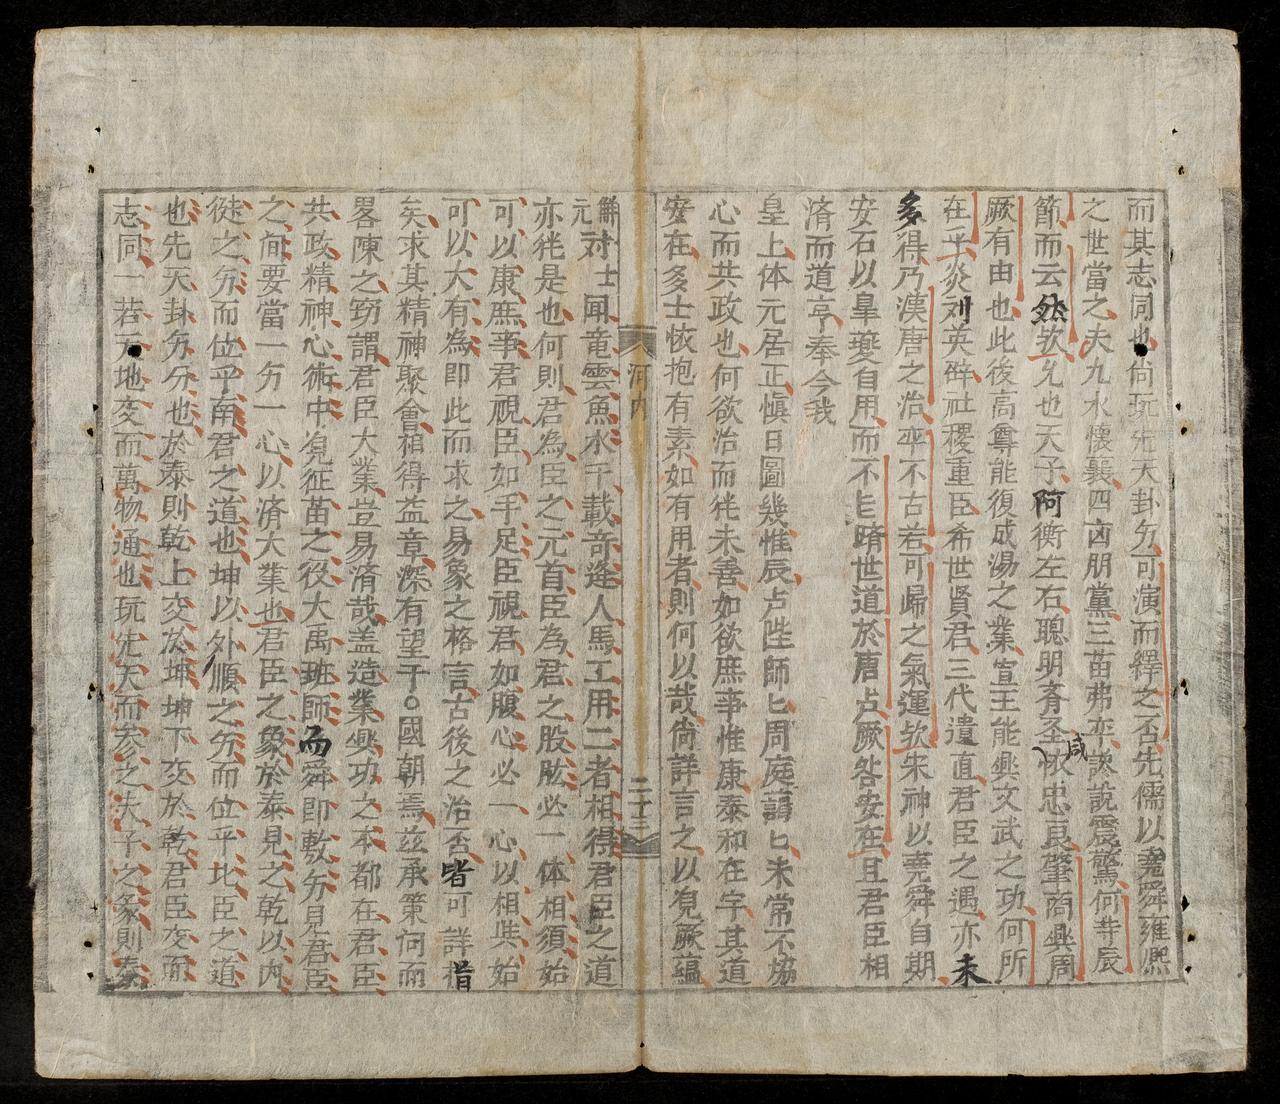 而其志同也尙玩先天卦爻可演而繹之否先儒以堯舜雍熙
之世當之夫九水懷襄四凶朋黨三苗弗率讒說震驚何寺辰
節而云然歟允也天子阿衡左右聰明齊圣咸怀忠良肇商興周
厥有由也此後高尊能復成湯之業宣王能興文武之功何所
在乎炎刘英辟社稷重臣希世賢君三代遺直君臣之遇亦未
多得乃漢唐之治卒不古若可歸之氣運欤宋神以堯舜自期
安石以皐夔自用而不旨躋世道於唐虞厥咎安在且君臣相
済而道亨奉今我
皇上体元居正愼日圖幾惟辰占陛師匕周庭謁匕未常不恊
心而共政也何欲治而徃未善如欲庶事惟康泰和在宇其道
安在多士恢抱有素如有用者則何以哉尙詳言之以覌厥蘊
觧元 对士聞竜雲魚水千載竒逢人馬工用二者相得君臣之道
亦徃是也何則君為臣之元首臣為君之股肱必一体相須始
可以康庶事君視臣如手足臣視君如腹心必一心以相與始
可以大有為即此而求之易象之格言古後之治否皆可詳指
矣求其精神聚會相得益章深有望于○國朝焉兹承策问而
畧陳之窃謂君臣大業豈易済哉盖造業興功之本都在君臣
共政精神心術中覌征苗之役大禹班師而舜即敷爻見君臣
之间要當一爻一心以済大業也君臣之象於泰見之乾以内
徤之爻而位乎南君之道也坤以外順之爻而位乎北臣之道
也先天卦爻分也於泰則乾上交於坤坤下交於乾君臣交而
志同一若天地交而萬物通也玩先天而参之夫子之彖則泰
河内
二十三